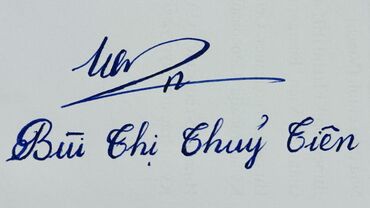 Bùi Thị Thuỷ Tiên